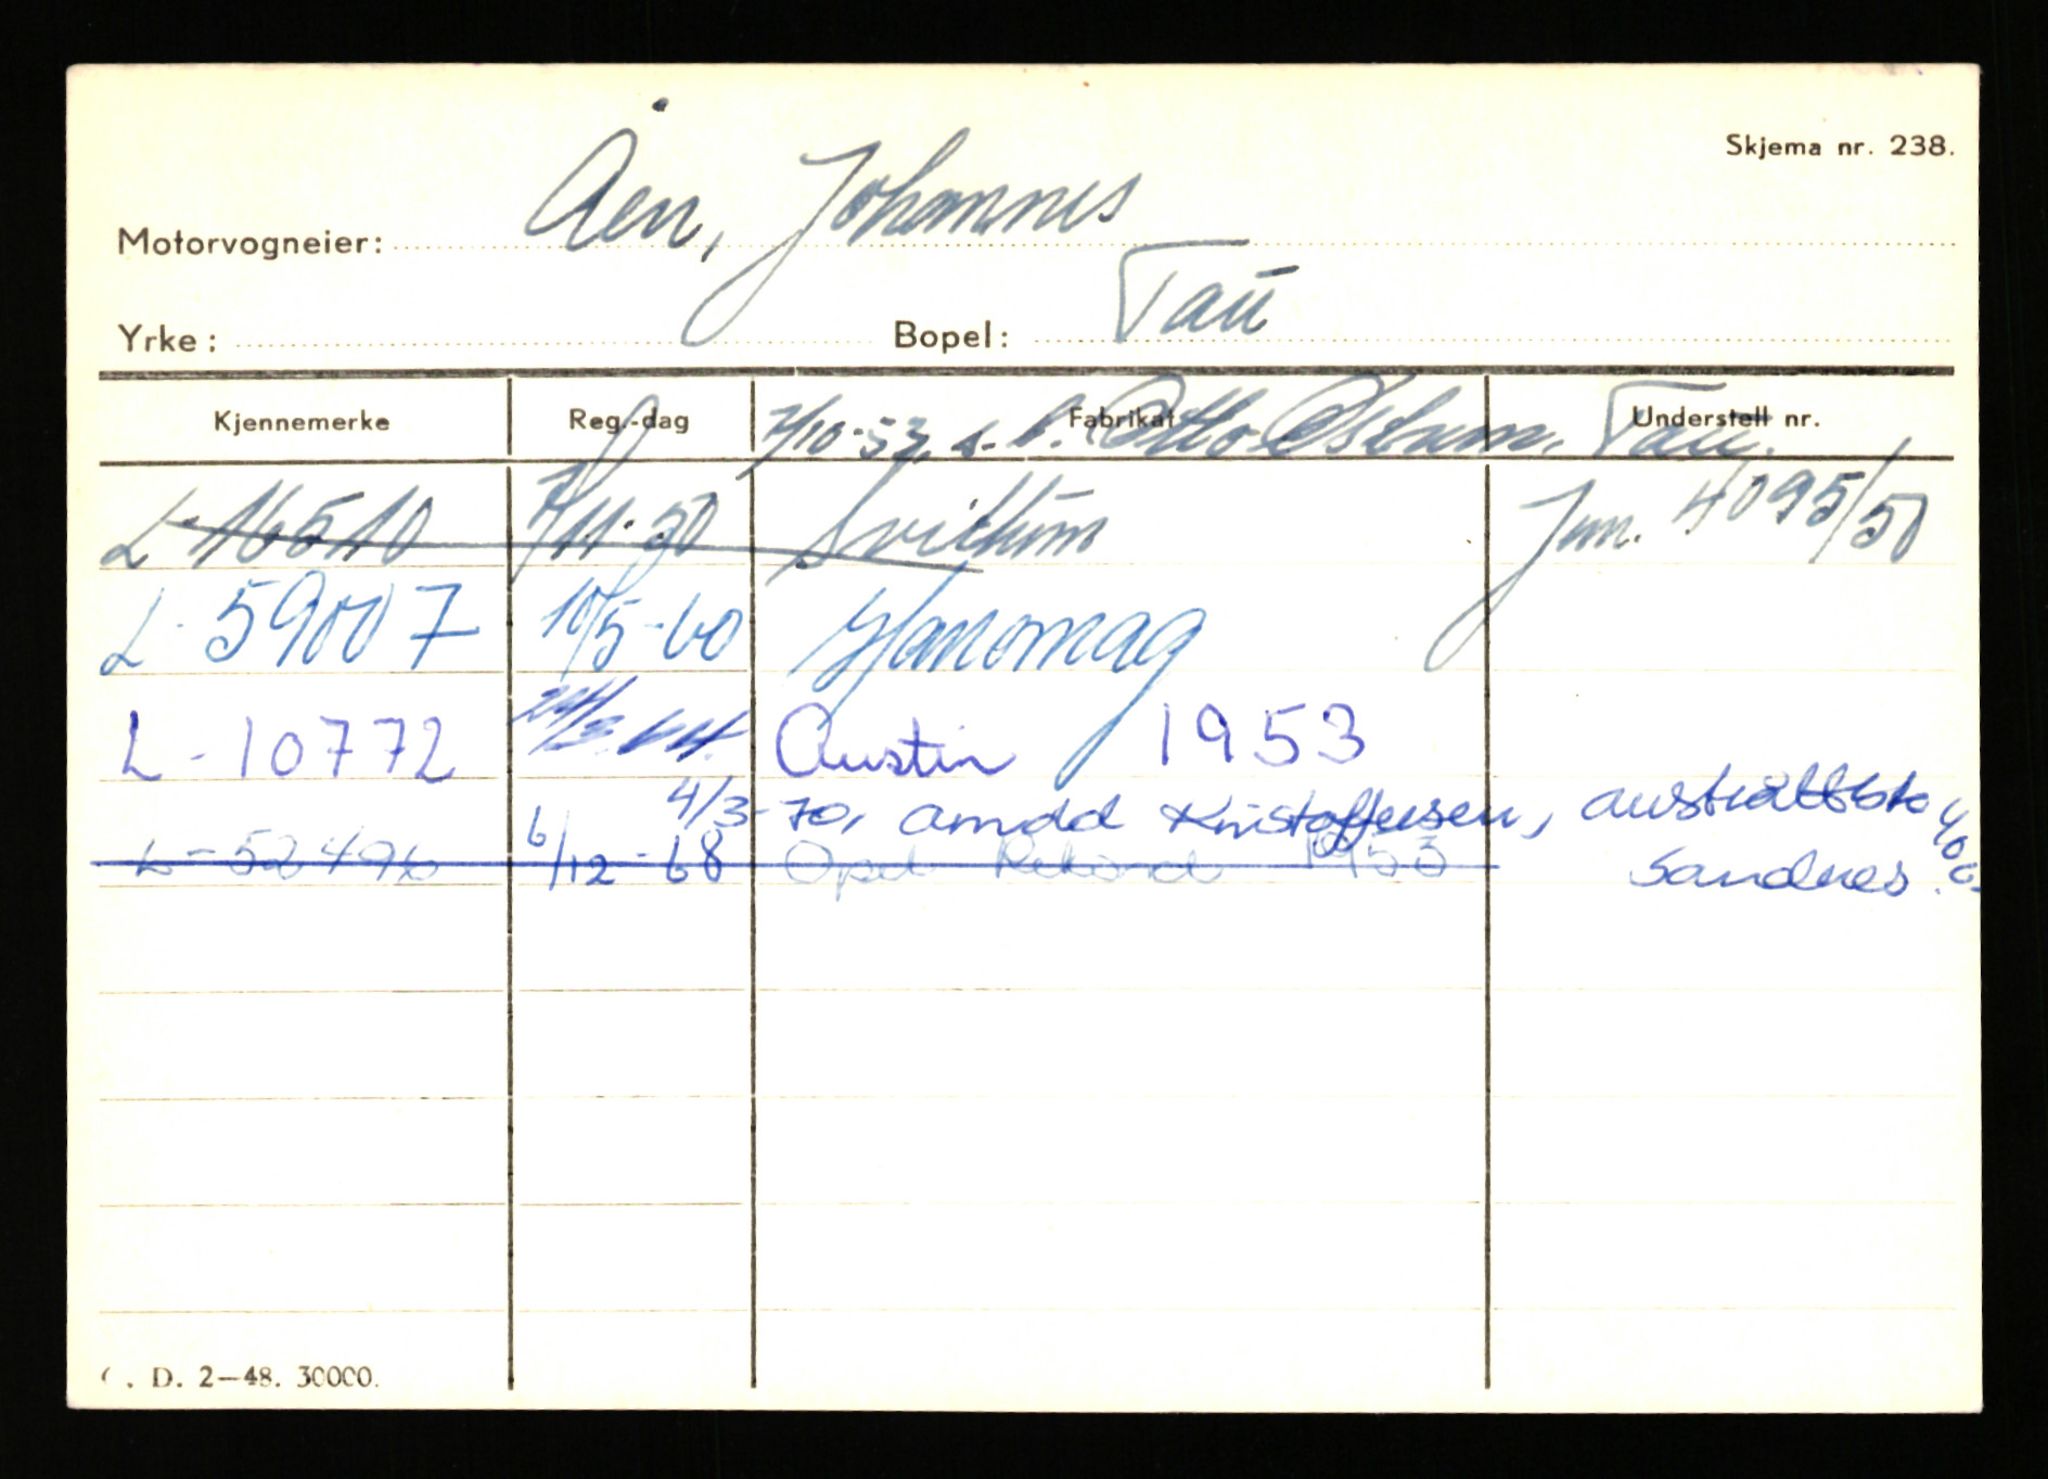 Skjema nr. 238.
Motorvogneier: Åen, Johannes
Yrke: Bopel: Tau
Kjennemerke Reg.-dag Fabrikat Understell nr.
7/10-53, s. Otto Tau.
L-16510 7/11-50 Svithun Jun. 4095/50
L-59007 10/5-60 Hanomag
L-10772 24/3.64. Austin 1953
4/3-70, Kristoffersen,
L-52496 6/12-68 Opel Rekord 1953 Sandnes.
. D. 2-48. 30000.